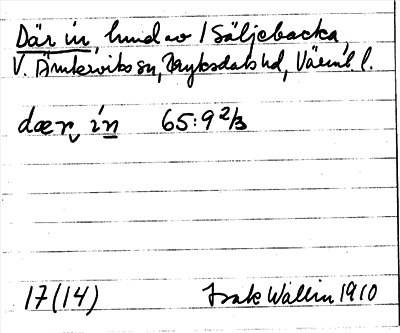 Där in, hmd av 1 Säljebacka,
V. Ämterviks sn, Fryksdals hd, Värml. l.
dær, ín 65:9 2/3
17(14) Isak Wallin 1910